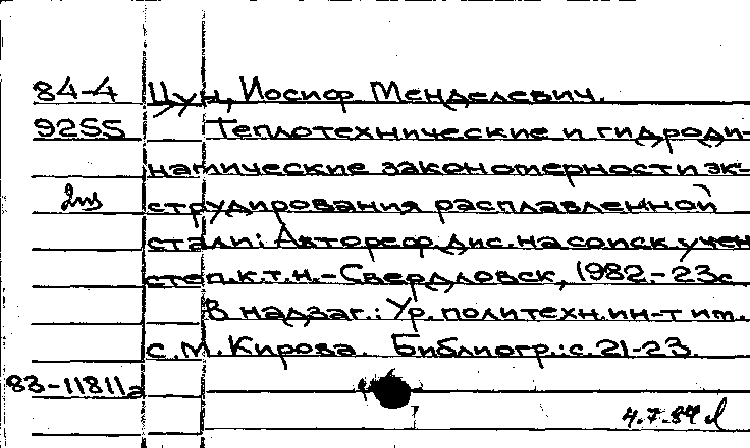 84-4 Цун, Иосиф Менделевич.
9255 Теплотехнические и гидроди-
намические закономерности эк-
2тз струдирования расплавленной
стали: Автореф. дис. на соиск. учен
степ. к.т.н. - Свердловск, 1982. - 23с
В надзаг.: Ур. политехн. ин-т им.
с. М. Кирова. Библиогр.: с. 21-23.
83-11811а
4.7.84